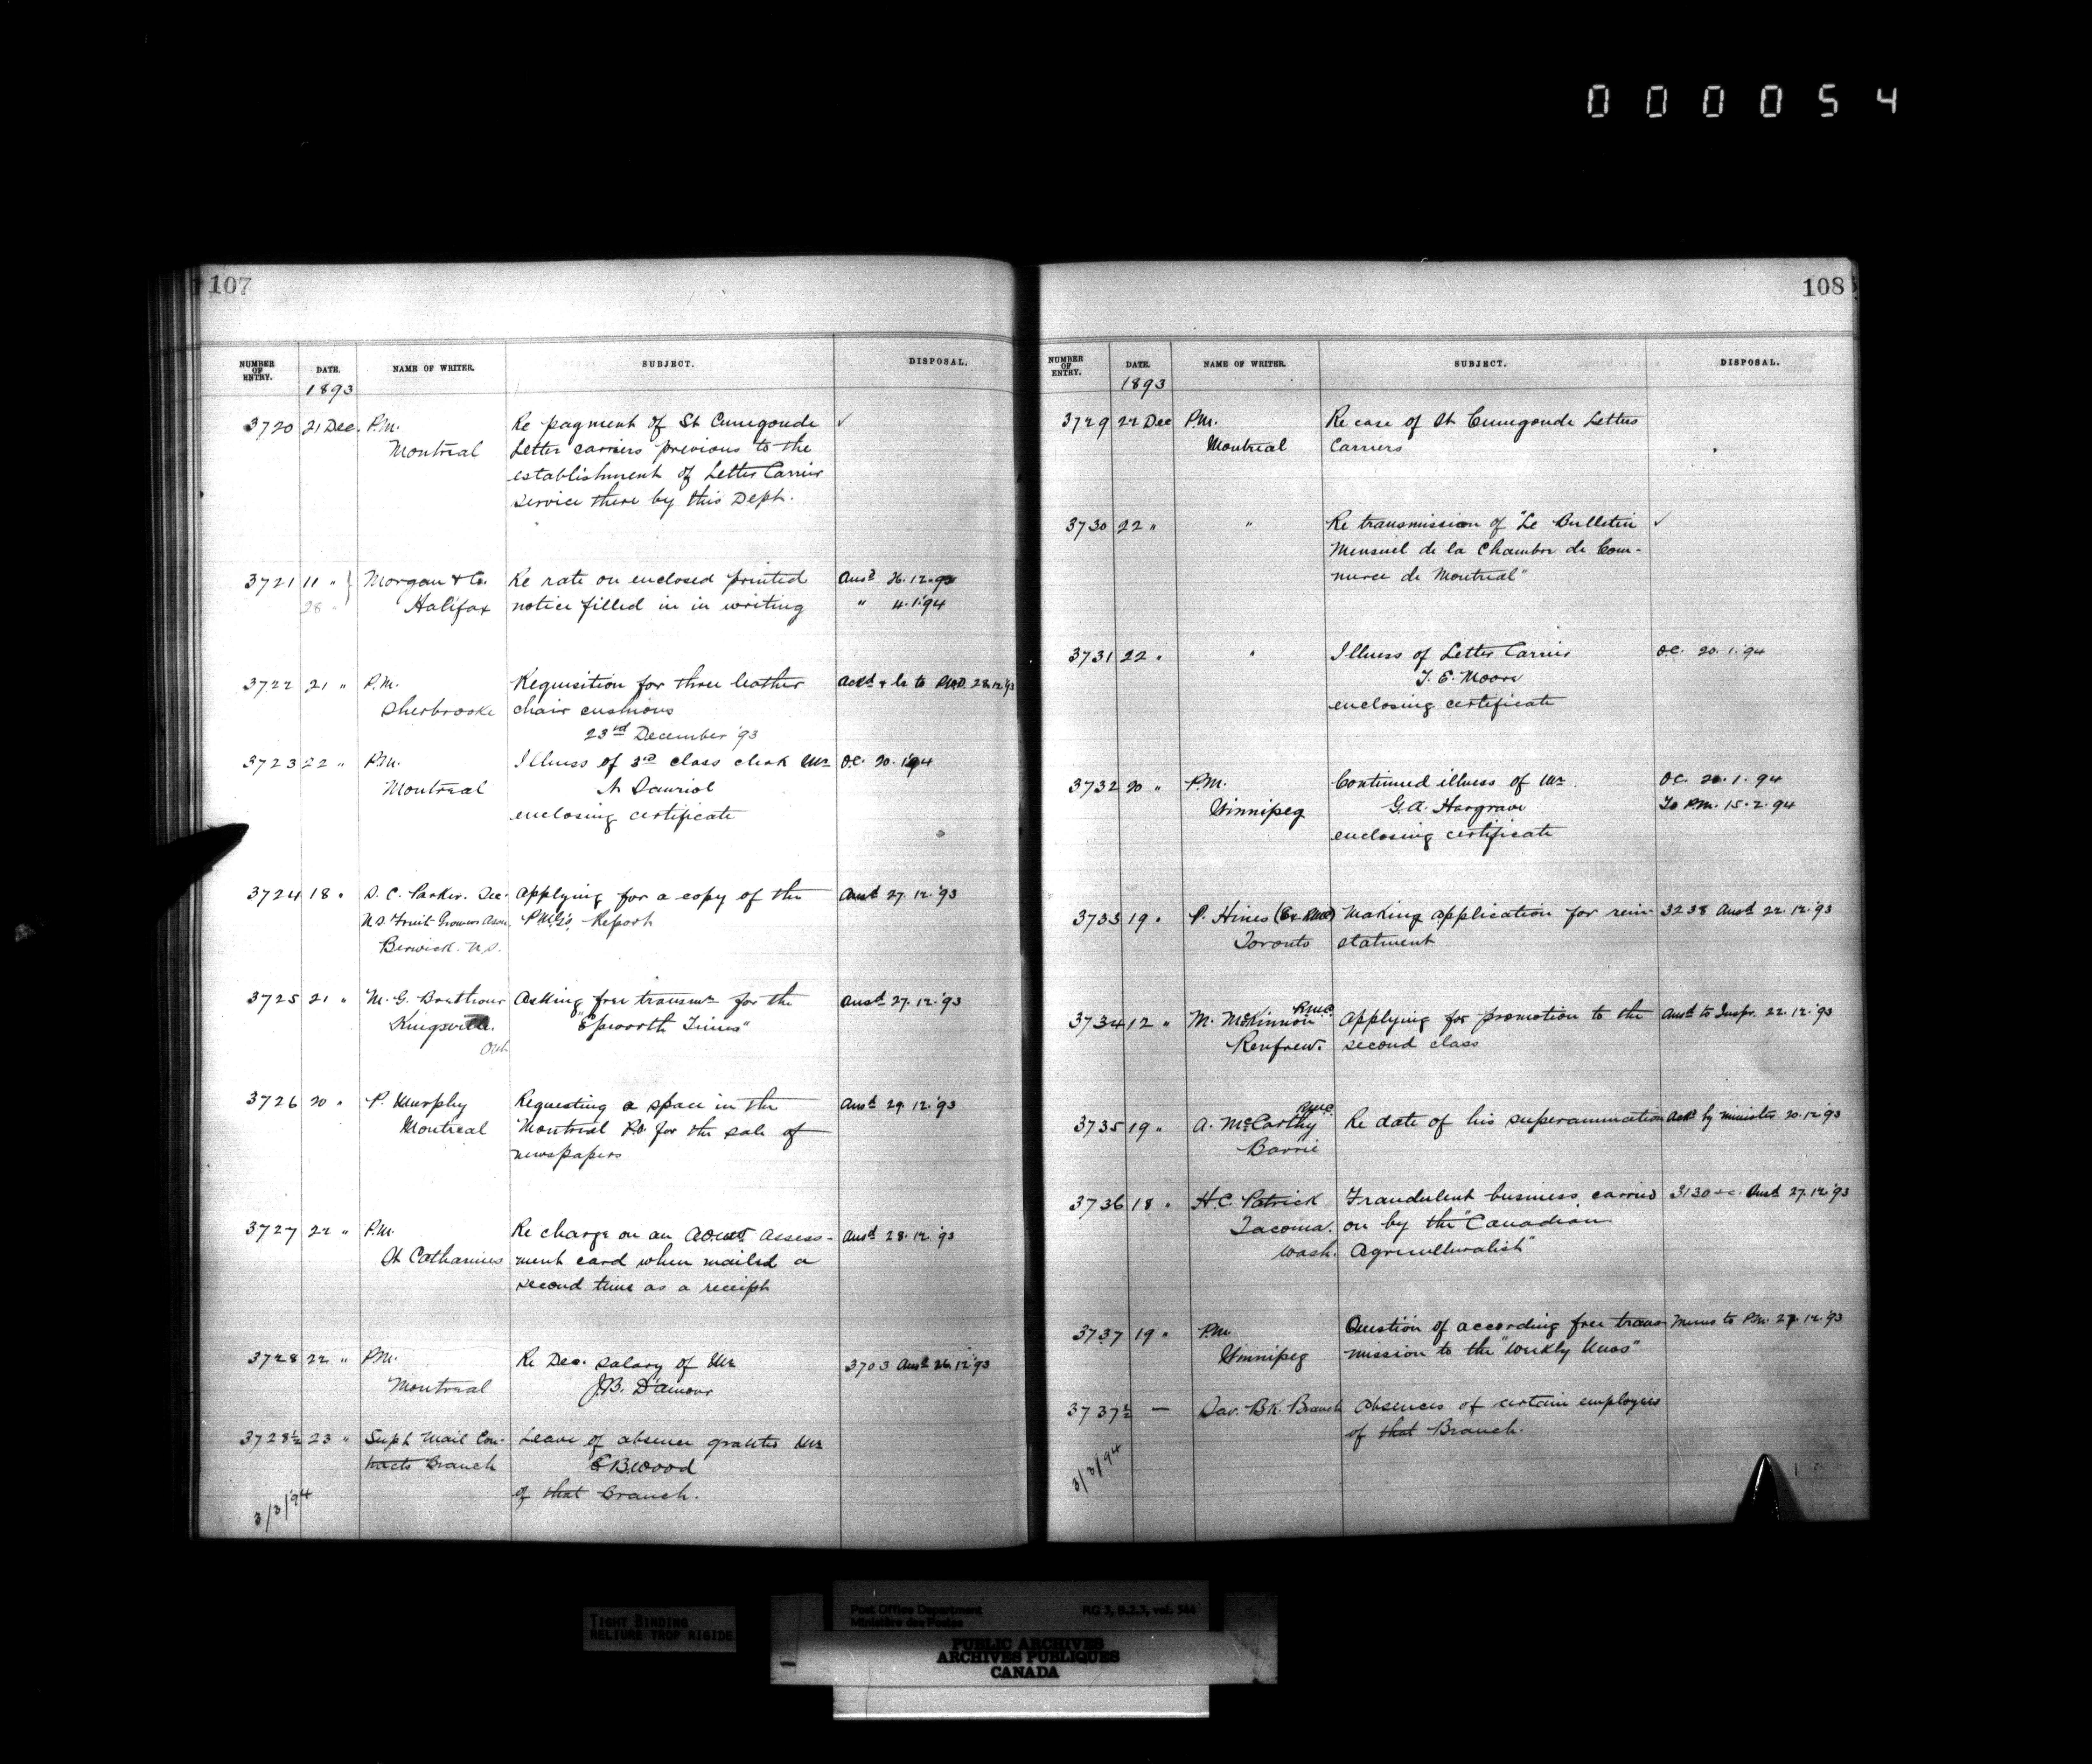 000054
107
NUMBER OF ENTRY. DATE. NAME OF WRITER. SUBJECT. DISPOSAL.
1893
3720 21 Dec. P.M. Re payment of St Cunegonde ✓
Montreal Letter carriers previous to the
establishment of Letter Carrier
service there by this Dept.
3721 11 " } Morgan & Co. Re rate on enclosed printed Ansd 26.12.93
28 " Halifax notice filled in in writing " 4.1.'94
3722 21 " P.M. Requisition for three leather Ackd & to P.W.D. 28.12.'93
Sherbrooke chair cushions
23rd December '93
3723 22 " P.M. Illness of 3rd class clerk Mr O.C. 20.1.94
Montreal A Dauriol
enclosing certificate
3724 18 " S. C. Parker. Sec. Applying for a copy of the Ansd 27.12.'93
N.S. Fruit Growers Assn. P.M.G's. Report
Berwick. N.S.
3725 21 " M. G. Asking free transmn for the Ansd 27.12.'93
Kingsville. "Epworth Times"
Ont
3726 20 " P. Murphy Requesting a space in the Ansd 29.12.'93
Montreal Montreal P.O. for the sale of
newspapers
3727 22 " P.M. Re charge on an AOUW assess- Ansd 28.12.'93
St Catharines ment card when mailed a
second time as a receipt
3728 22 " P.M. Re Dec. salary of Mr 3703 Ansd 26.12.'93
Montreal J.B. D'amour
3728½ 23 " Supt Mail Con- Leave of absence granted Mr
tracts Branch E B. Wood
of that Branch.
3/3/'94
108
NUMBER OF ENTRY. DATE. NAME OF WRITER. SUBJECT. DISPOSAL.
1893
3729 22 Dec P.M. Re case of St Cunegonde Letter
Montreal Carriers
3730 22 " " Re transmission of "Le Bulletin ✓
Mensuel de la Chambre de Com-
merce de Montreal"
3731 22 " " Illness of Letter Carrier O.C. 20.1.'94
T. E. Moore
enclosing certificate
3732 20 " P.M. Continued illness of Mr. O.C. 20.1.94
Winnipeg G.A. Hargrave To P.M. 15.2.94
enclosing certificate
3733 19 " P. Hines (Ex RMC) Making application for rein- 3238 Ansd 22.12.'93
Toronto statment
3734 12 " M. McKinnon R.M.C. Applying for promotion to the Ansd to Inspr. 22.12.'93
Renfrew. second class
3735 19 " A. McCarthy R.M.C. Re date of his superannuation Ackd by minister 20.12.'93
Barrie
3736 18 " H.C. Patrick Fraudulent business carried 3130 Ansd 27.12.'93
Tacoma. on by the "Canadian
Wash. Agriculturalist"
3737 19 " P.M. Question of according free trans- Memo to P.M. 27.12.'93
Winnipeg mission to the "Weekly News"
3737½ — Sav. BK. Branch Absences of certain employees
of that Branch.
3/3/94
TIGHT BINDING
RELIURE TROP RIGIDE
Post Office Department RG 3, B.2.3, vol. 544
Ministère des Postes
PUBLIC ARCHIVES
ARCHIVES PUBLIQUES
CANADA